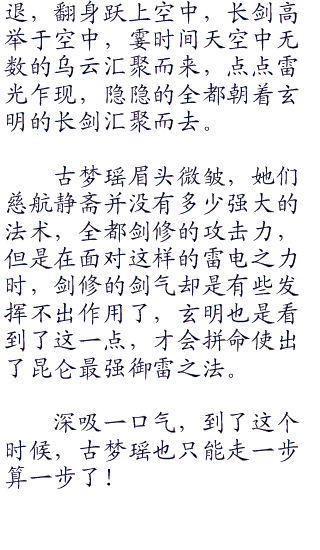 退，翻身跃上空中，长剑高
举于空中，霎时间天空中无
数的乌云汇聚而来，点点雷
光乍现，隐隐的全都朝着玄
明的长剑汇聚而去。
古梦瑶眉头微皱，她们
慈航静斋并没有多少强大的
法术，全都剑修的攻击力，
但是在面对这样的雷电之力
时，剑修的剑气却是有些发
挥不出作用了，玄明也是看
到了这一点，才会拼命使出
了昆仑最强御雷之法。
深吸一口气，到了这个
时候，古梦瑶也只能走一步
算一步了！